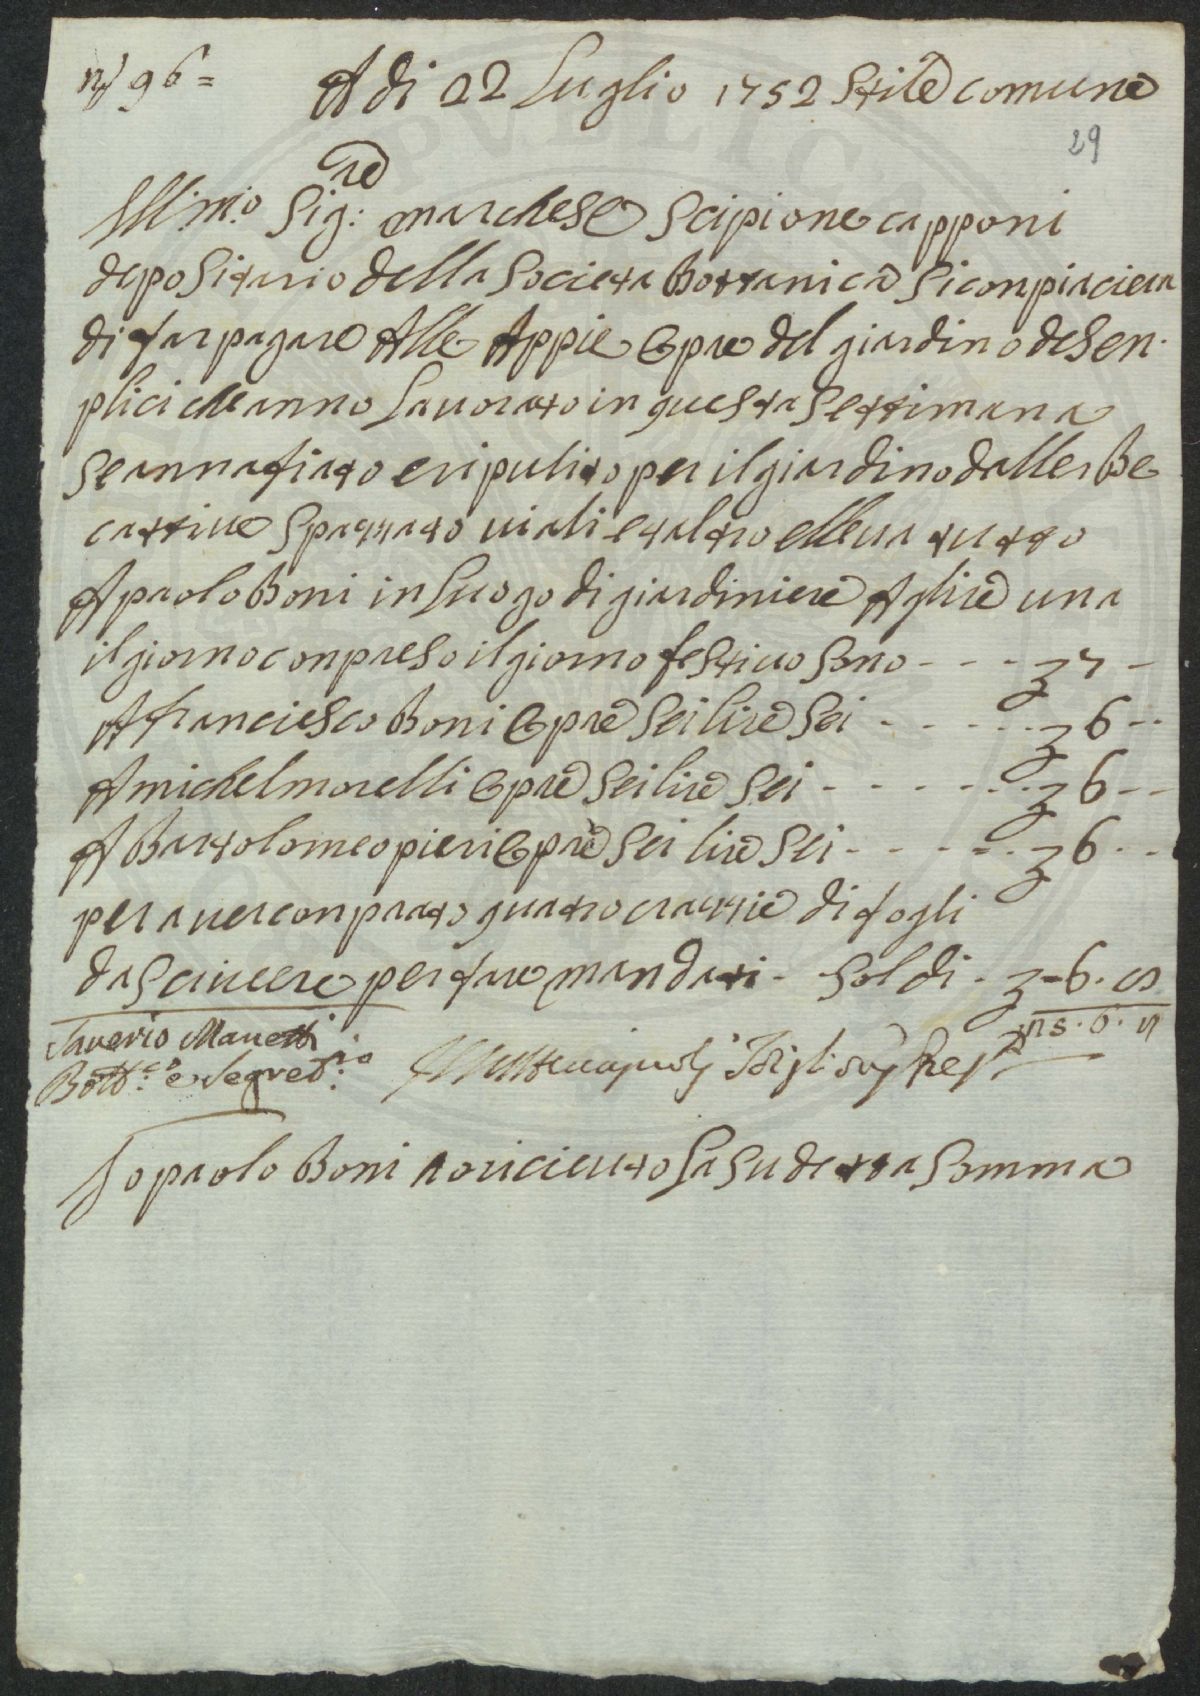 nº 96=
A di 22 Luglio 1752 Stile comune
29
Illmo. Sig:re marchese Scipione capponi
depositario della Societa Bottanica Si conpiaciera
di far pagare Alle Appie Opre del giardino deSen-
plici che anno Lauorato in questa Settimana
Se annafiato e ripulito per il giardino dallerbe
cattiue Spazzato uiali et altro elleua tutto
A paolo Boni in Luogo di giardiniere A lire una
il giorno conpreso il giorno festiuo Sono - - - 7 -
A franciesco Boni Opre Sei lire Sei - - - - - 6 - -
A michel morelli Opre Sei lire Sei - - - - - - 6 - -
A Bartolomeo pieri Opre Sei lire Sei - - - - - 6 - -
per auer conprato quatro crazzie di fogli
da Sciuere per fare mandati - Soldi - - 6. 8
25. 6. 8
Saverio Manetti
Bottco. e Segretrio.
Io paolo Boni o riceuto La Sudetta Somma